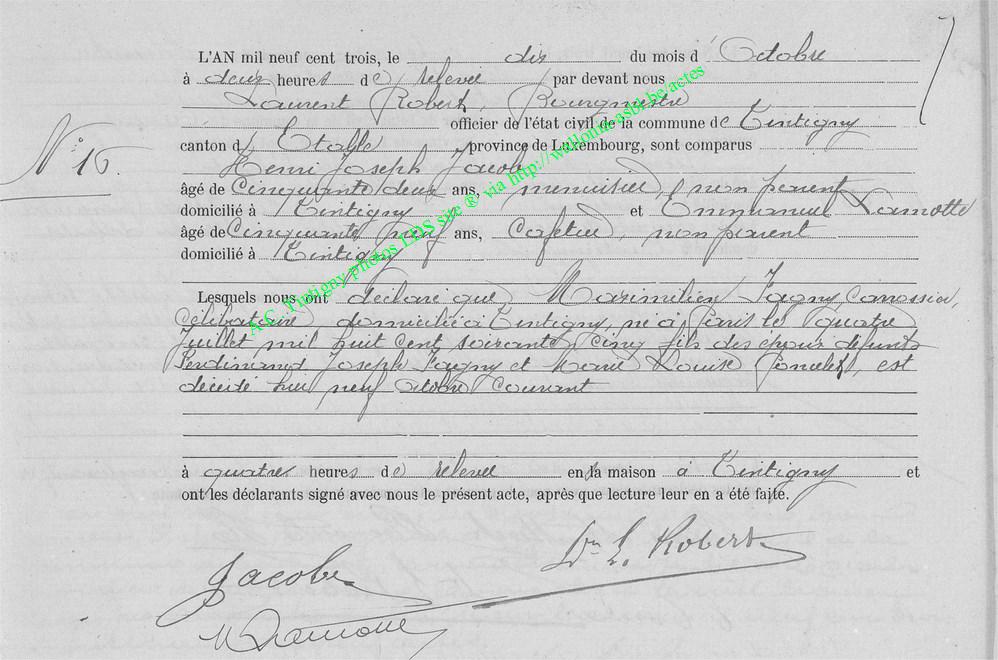 L'AN mil neuf cent trois, le dix du mois d'Octobre
à deux heures de relevée par devant nous
Laurent Robert, Bourgmestre
officier de l'état civil de la commune de Tintigny
N° 16.
canton d'Etalle province de Luxembourg, sont comparus
Henri Joseph Jacob
âgé de Cinquante deux ans, menuisier, non parent
domicilié à Tintigny et Emmanuel Lamotte
âgé de Cinquante neuf ans, Cafetier, non parent
domicilié à Tintigny
Lesquels nous ont déclaré que Maximilien Fagny, Carossier,
Célibataire, domicilié à Tintigny, né à Paris le quatre
Juillet mil huit cent soixante cinq fils des époux défunts
Ferdinand Joseph Fagny et Marie Louise Poncelet, est
décédé hier neuf Octobre Courant
à quatre heures de relevée en sa maison à Tintigny et
ont les déclarants signé avec nous le présent acte, après que lecture leur en a été faite.
Dr L. Robert
Jacob
Lamotte
A.C. Tintigny photos LDS site ® via http://wallonia-asbl.be/actes